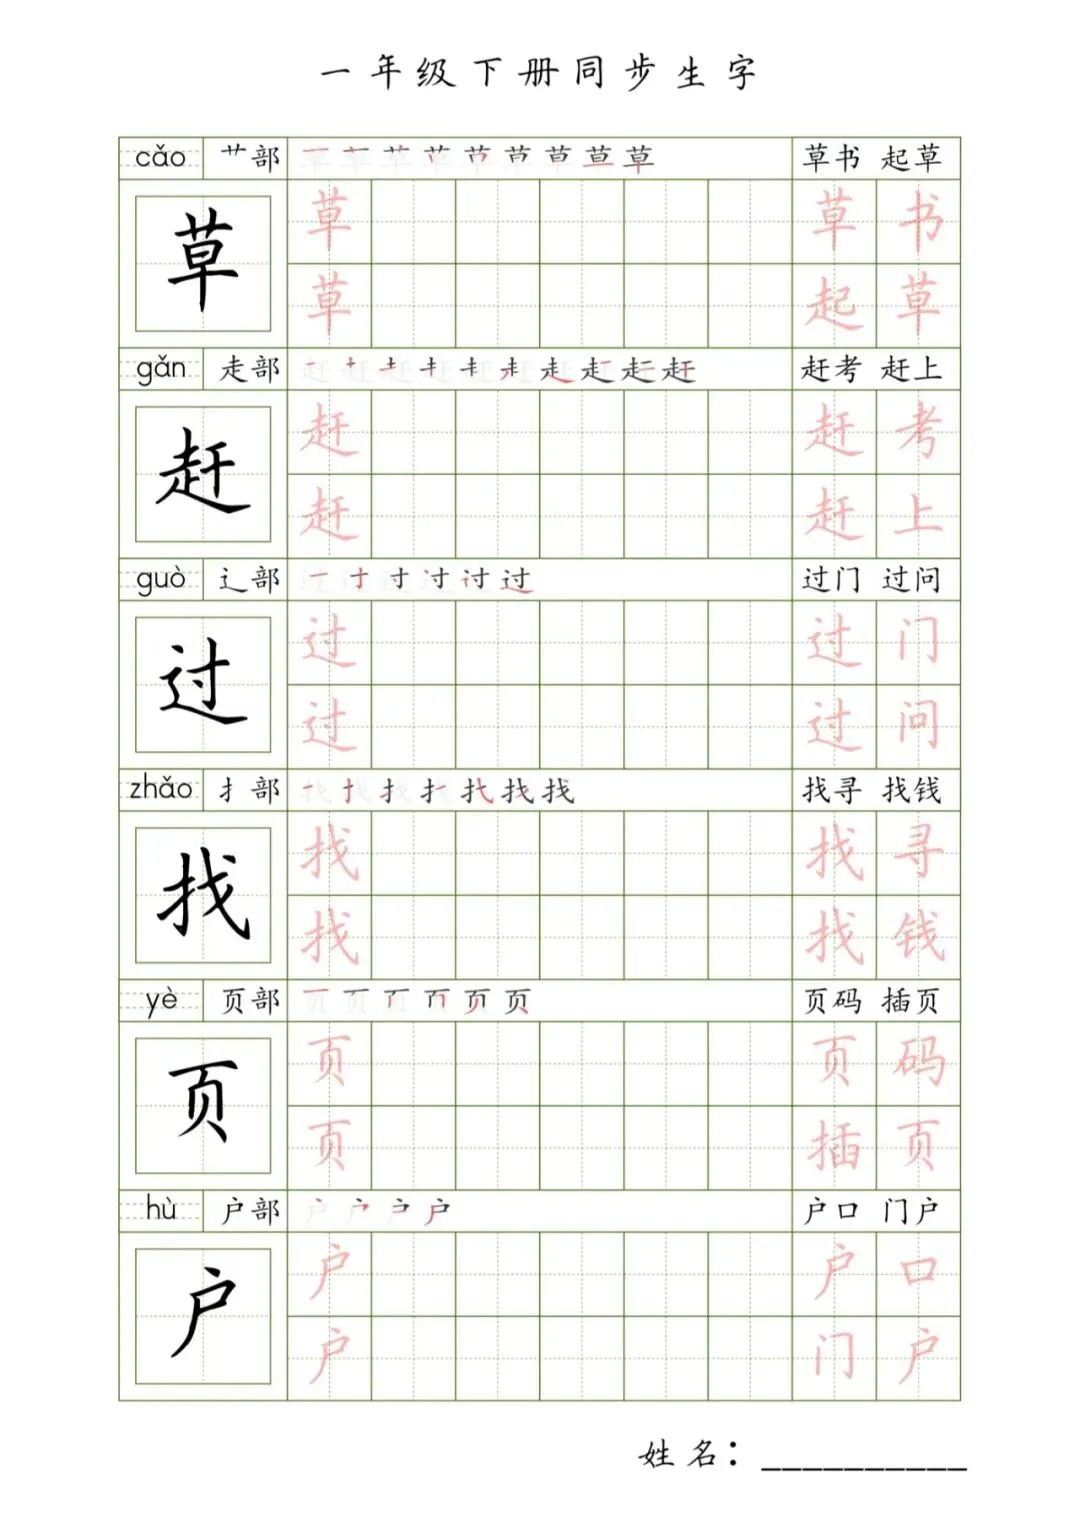 一年级下册同步生字
cǎo 艹部 草 草书 起草
草 草 草书
草 起草
gǎn 走部 赶 赶考 赶上
赶 赶 赶考
赶 赶上
guò 辶部 过 过门 过问
过 过 过门
过 过问
zhǎo 扌部 找 找寻 找钱
找 找 找寻
找 找钱
yè 页部 页 页码 插页
页 页 页码
页 插页
hù 户部 户 户口 门户
户 户 户口
户 门户
姓名：__________